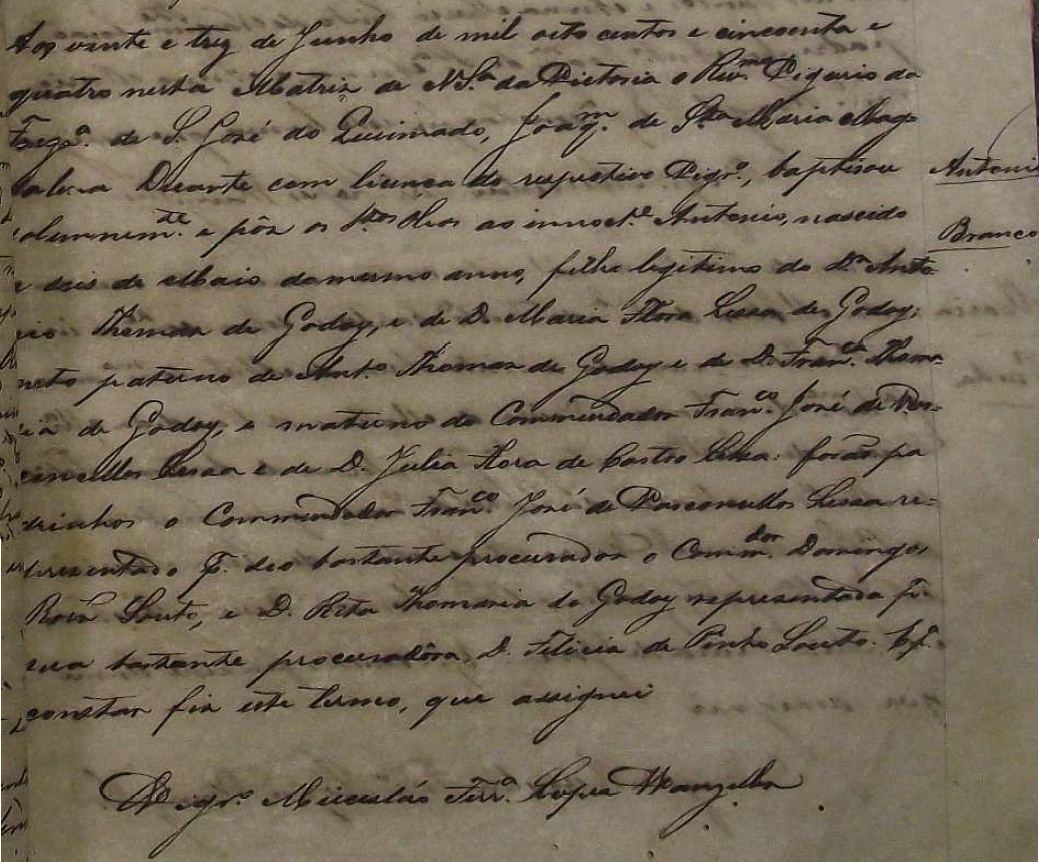 Aos vinte e trez de Junho de mil oito centos e cincoenta e
quatro nesta Matriz de N. Sª da Victoria o Revmo. Vigario da
Fregª. de S. José do Queimado, Joaqm. de Sta Maria Mag-
dalena Duarte com licença do respectivo Vigrº., baptisou
solemnemte. e pôz os Stos Oleos ao innocte. Antonio, nascido
a dois de Maio do mesmo anno, filho legitimo do Dr Anto-
nio Thomaz de Godoy, e de D. Maria Flora Lessa de Godoy;
neto paterno de Antº. Thomaz de Godoy e de D. Francª. Thoma-
sia de Godoy, e materno do Commendador Franco. José de Vas-
concellos Lessa e de D. Julia Flora de Castro Lessa: forão pa
drinhos o Commendador Franco. José de Vasconcellos Lessa re-
presentado p. seo bastante procurador o Commdor. Domingos
Roiz Souto, e D. Rita Thomasia de Godoy representada p.
sua bastante procuradôra, D. Felicia de Pinho Souto. E p.
constar fiz este termo, que assignei
O Vigrº. Miceulás Ferrª. Lopes Wanzeller
Antonio
Branco